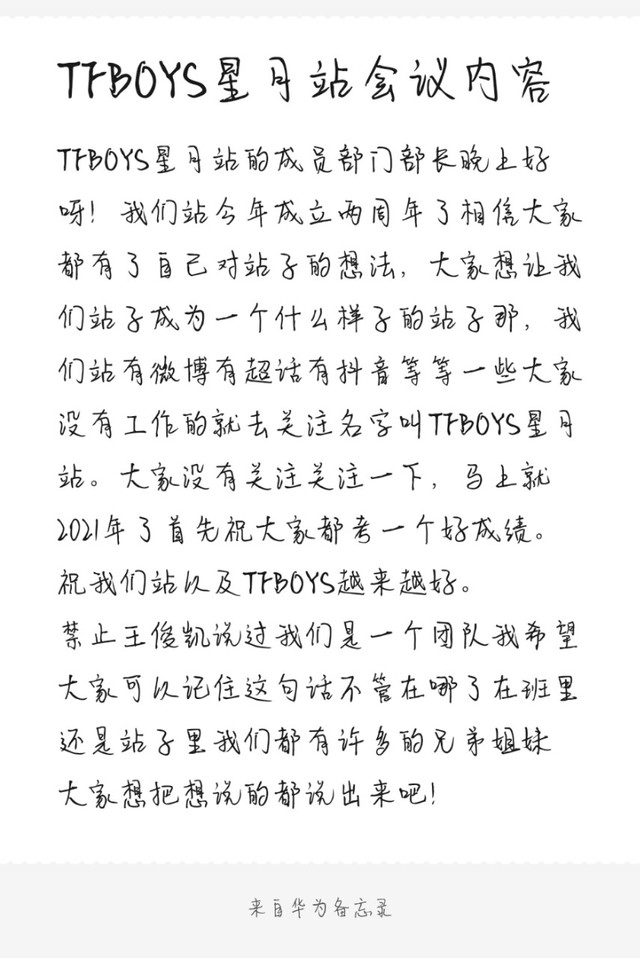 TFBOYS星月站会议内容
TFBOYS星月站的成员部门部长晚上好
呀！我们站今年成立两周年了相信大家
都有了自己对站子的想法，大家想让我
们站子成为一个什么样子的站子那，我
们站有微博有超话有抖音等等一些大家
没有工作的就去关注名字叫TFBOYS星月
站。大家没有关注关注一下，马上就
2021年了首先祝大家都考一个好成绩。
祝我们站以及TFBOYS越来越好。
禁止王俊凯说过我们是一个团队我希望
大家可以记住这句话不管在哪了在班里
还是站子里我们都有许多的兄弟姐妹
大家想把想说的都说出来吧！
来自华为备忘录